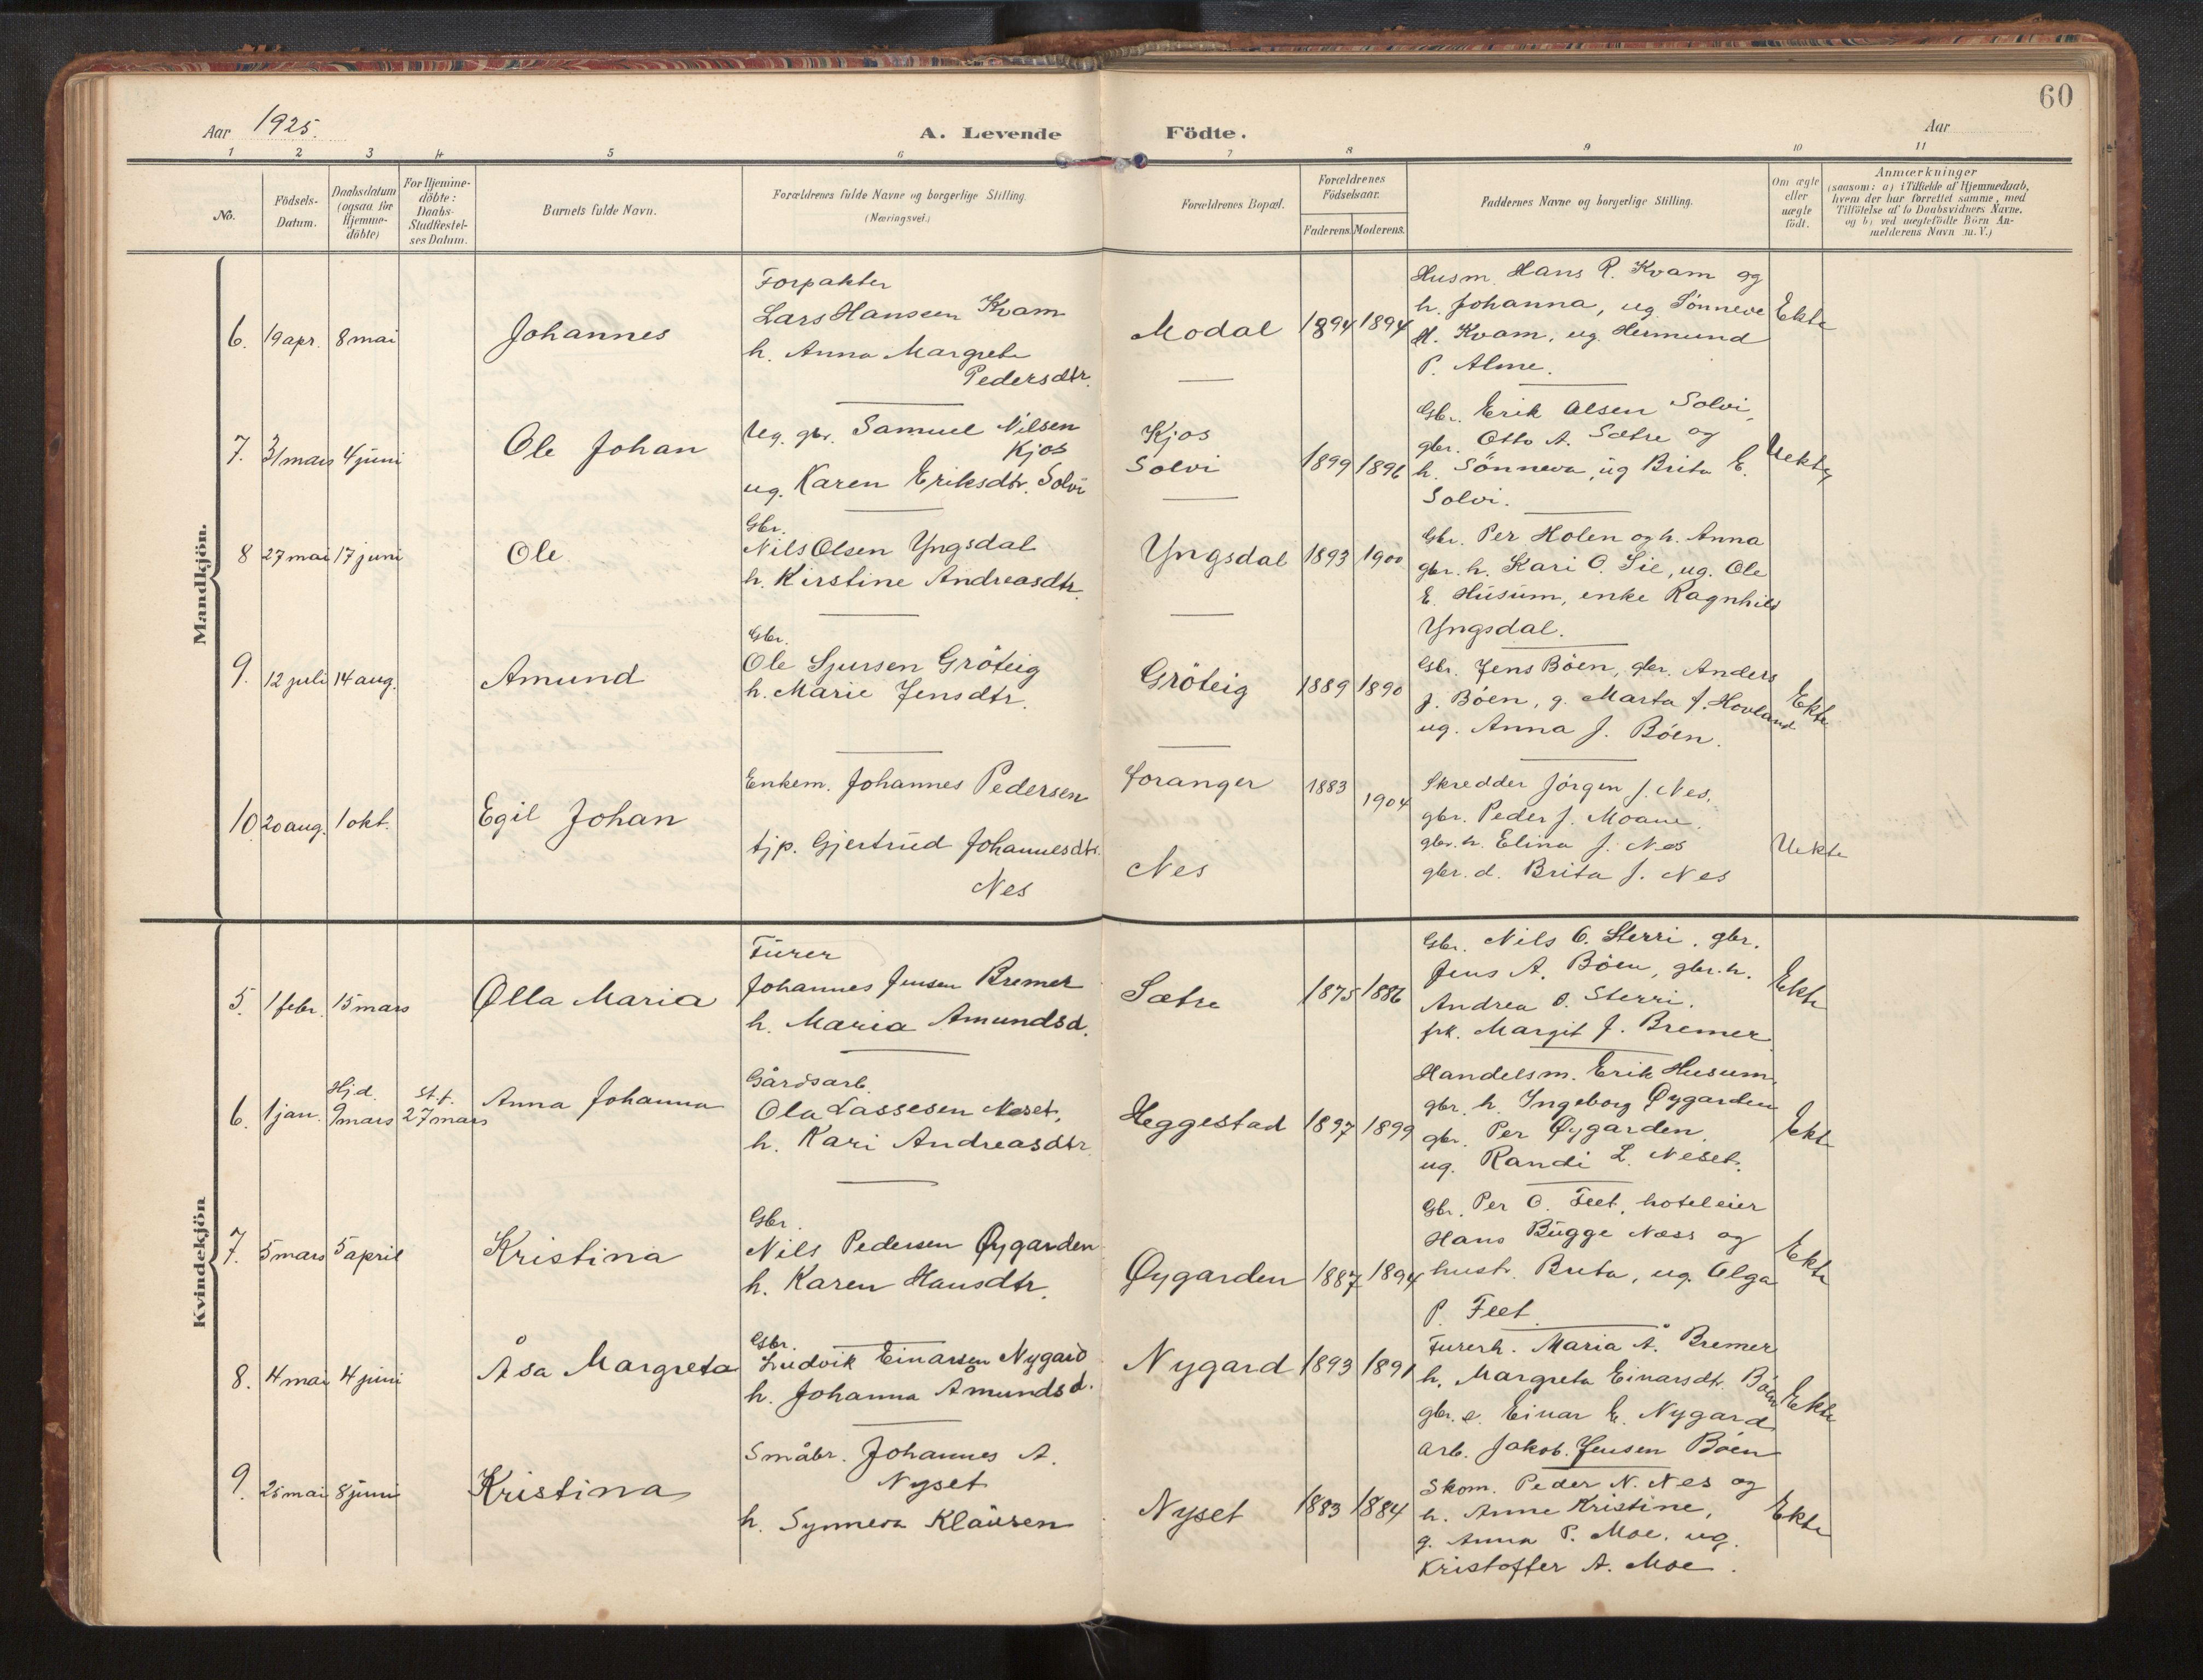 60
Aar 1925.
A. Levende Födte.
Aar
1 2 3 4 5 6 7 8 9 10 11
No.
Födsels-
Datum.
Daabsdatum
(ogsaa for
Hjemme-
döbte)
For Hjemme-
döbte:
Daabs-
Stadfæstel-
ses Datum.
Barnets fulde Navn.
Forældrenes fulde Navne og borgerlige Stilling
(Næringsvei.)
Forældrenes Bopæl.
Forældrenes
Födselsaar.
Faderens. Moderens.
Faddernes Navne og borgerlige Stilling.
Om ægte
eller
uægte
födt.
Anmærkninger
(saasom: a) i Tilfælde af Hjemmedaab,
hvem der har forrettet samme, med
Tilföielse af to Daabsvidners Navne,
og b) ved uægtefödte Börn An-
melderens Navn m. V.)
Mandkjön.
6. 19 apr. 8 mai
Johannes
Forpakter
Lars Hansen Kvam
h. Anna Margrete
Pedersdtr.
Modal 1894 1894
Husm. Hans P. Kvam og
h. Johanna, ug. Sönneve
H. Kvam, ug. Hermund
P. Alme.
Ekte
7. 31 mars 4 juni
Ole Johan
Ug. gbr. Samuel Nilsen
Kjos
ug. Karen Eriksdtr. Solvi
Kjos
Solvi
1899 1896
Gbr. Erik Olsen Solvi,
gbr. Otto A. Sætre og
h. Sönneva, ug Brita E.
Solvi.
Uekte
8 27 mai 17 juni
Ole
Gbr.
Nils Olsen Yngsdal
h. Kirstine Andreasdtr.
Yngsdal 1893 1900
Gbr. Per Holen og h. Anna
gbr. h. Kari O. Lie, ug. Ole
E. Husum, enke Ragnhild
Yngsdal.
9. 12 juli 14 aug.
Amund
Gbr.
Ole Sjursen Gröteig
h. Marie Jensdtr.
Gröteig 1889 1890
Gbr. Jens Böen, gbr. Anders
J. Böen, g. Marta J. Hovland
ug. Anna J. Böen.
Ekte
10 20 aug. 1 okt.
Egil Johan
Enkem. Johannes Pedersen
tjp. Gjertrud Johannesdtr.
Nes
Foranger
Nes
1883 1904
Skredder Jörgen J. Nes,
gbr. Peder J. Moane.
gbr. h. Elina J. Nes
gbr. d. Brita J. Nes
Uekte
Kvindekjön
5. 1 febr. 15 mars
Ølla Maria
Furer
Johannes Jensen Bremer
h. Maria Amundsd.
Sætre 1875 1886
Gbr. Nils O. Sterri, gbr.
Jens A. Böen, gbr. h.
Andrea O. Sterri.
frk. Margit J. Bremer
Ekte
6. 1 jan. Hjd. 9 mars st.f. 27 mars
Anna Johanna
Gårdsarb.
Ola Lassesen Neset,
h. Kari Andreasdtr.
Heggestad 1897 1899
Handelsm. Erik Husum,
gbr. h. Ingeborg Øygarden
gbr. Per Øygarden.
ug. Randi L. Neset.
Ekte
7. 5 mars 5 april
Kristina
Gbr.
Nils Pedersen Øygarden
h. Karen Hansdtr.
Øygarden 1887 1894
Gbr. Per O. Feet, hoteleier
Hans Bugge Næss og
hustr. Brita, ug. Olga
P. Feet
Ekte
8. 4 mai 4 juni
Åsa Margreta
Gbr.
Ludvik Einarsen Nygard
h. Johanna Åmundsd.
Nygard 1893 1891
Furerh. Maria Å. Bremer
h. Margreta Einarsdtr. Böen
gbr. s. Einar E. Nygard
arb. Jakob Jensen Böen
Ekte
9. 25 mai 8 juni
Kristina
Småbr. Johannes A.
Nyset
h. Synneva Klausen
Nyset 1883 1884
Skom. Peder N. Nes og
h. Anne Kristine,
g. Anna P. Moe, ug.
Kristoffer A. Moe.
Ekte